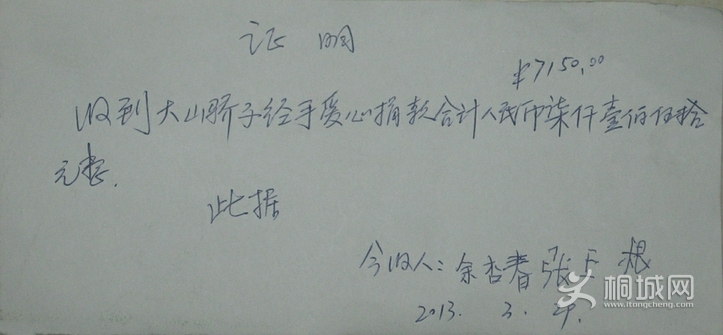 证明
¥7150.00
收到大山骄子经手爱心捐款合计人民币柒仟壹佰伍拾
元整.
此据
今收人：余杏春 张玉根
2013. 3. 29.
桐城网
www.itongcheng.com